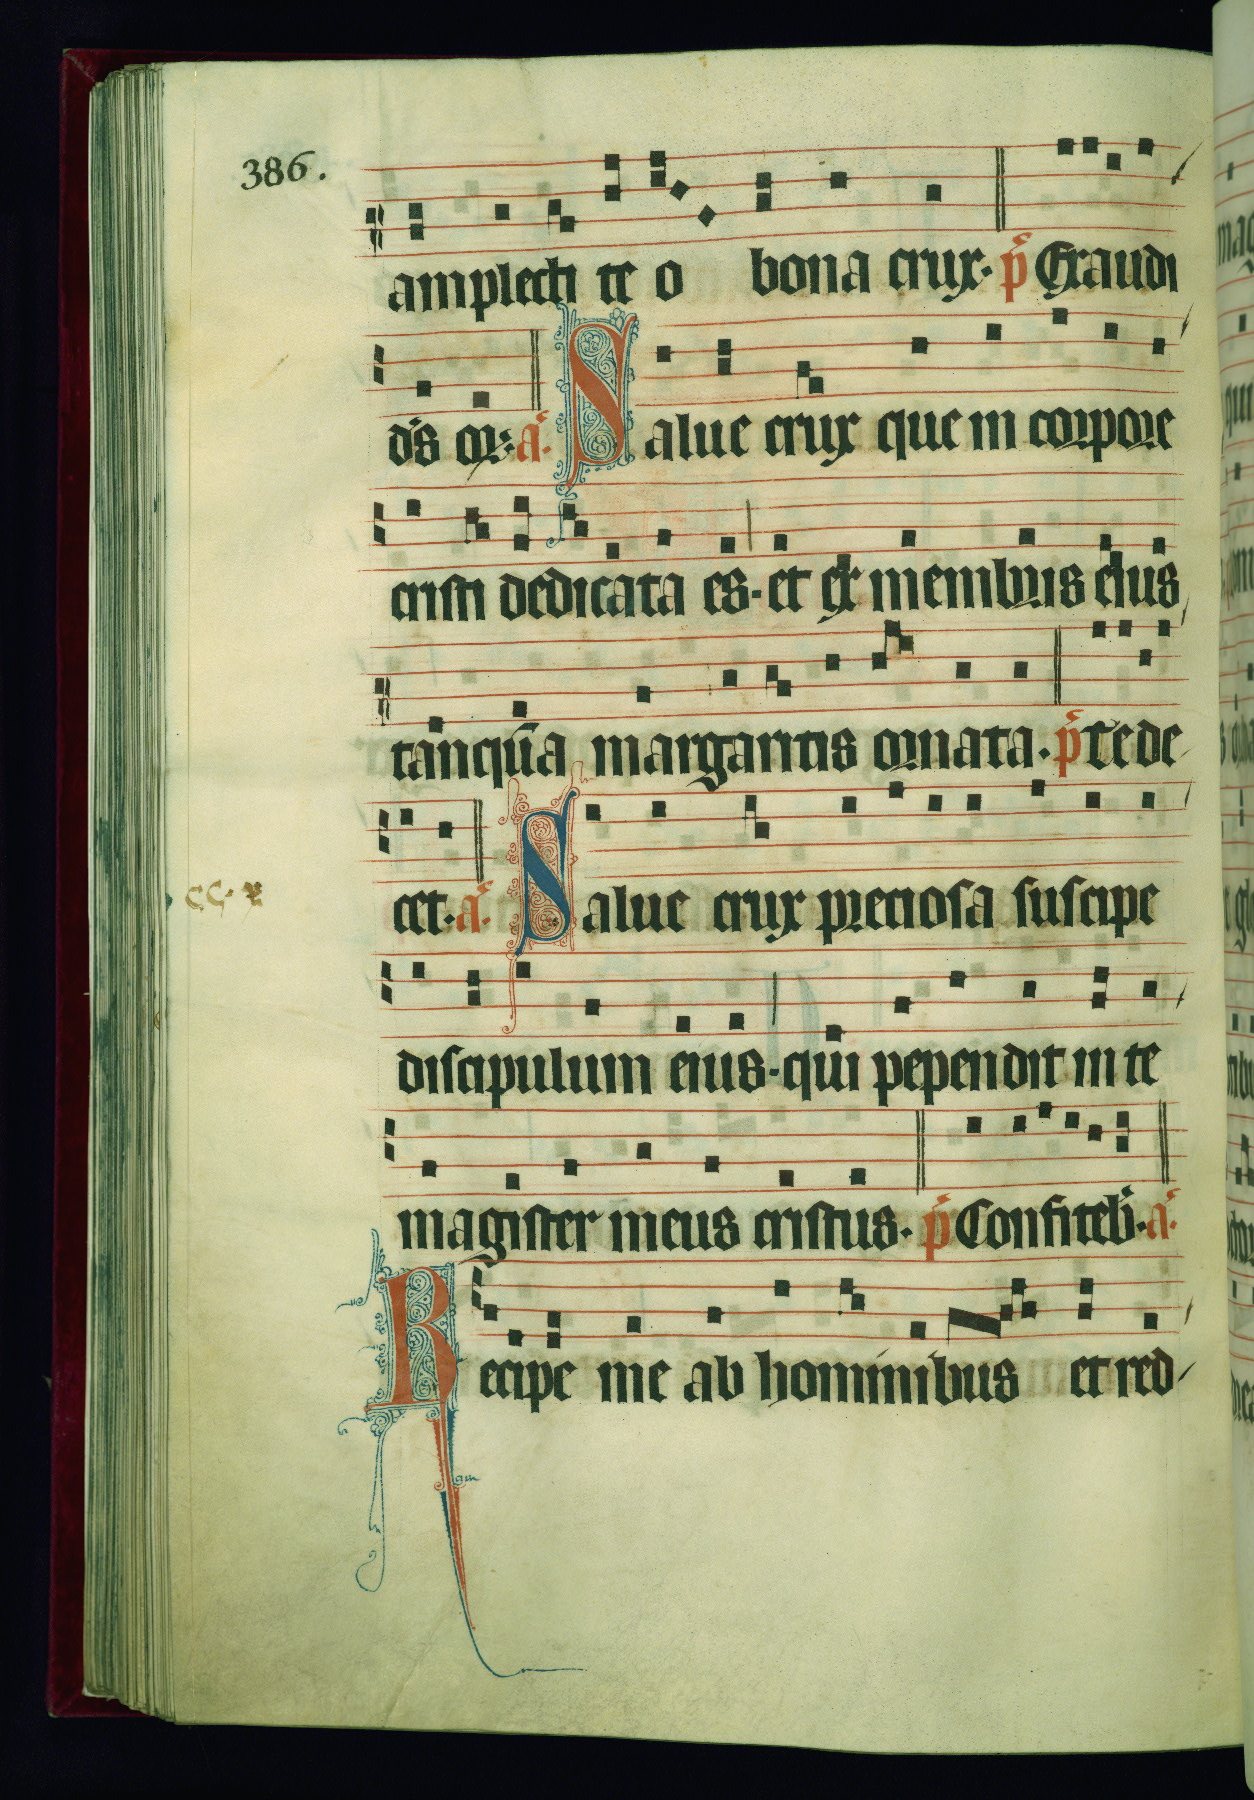 386.
amplecti te o bona crux. p̄s Exaudi
d̄s or. a. Salue crux que in corpore
cristi dedicata es. et ex membris eius
tanquā margaritis ornata. p̄s Te de
cet. a. Salue crux preciosa suscipe
cc. x
discipulum eius. qui pependit in te
magister meus cristus. p̄s Confiteb̄. a.
Recipe me ab hominibus et red